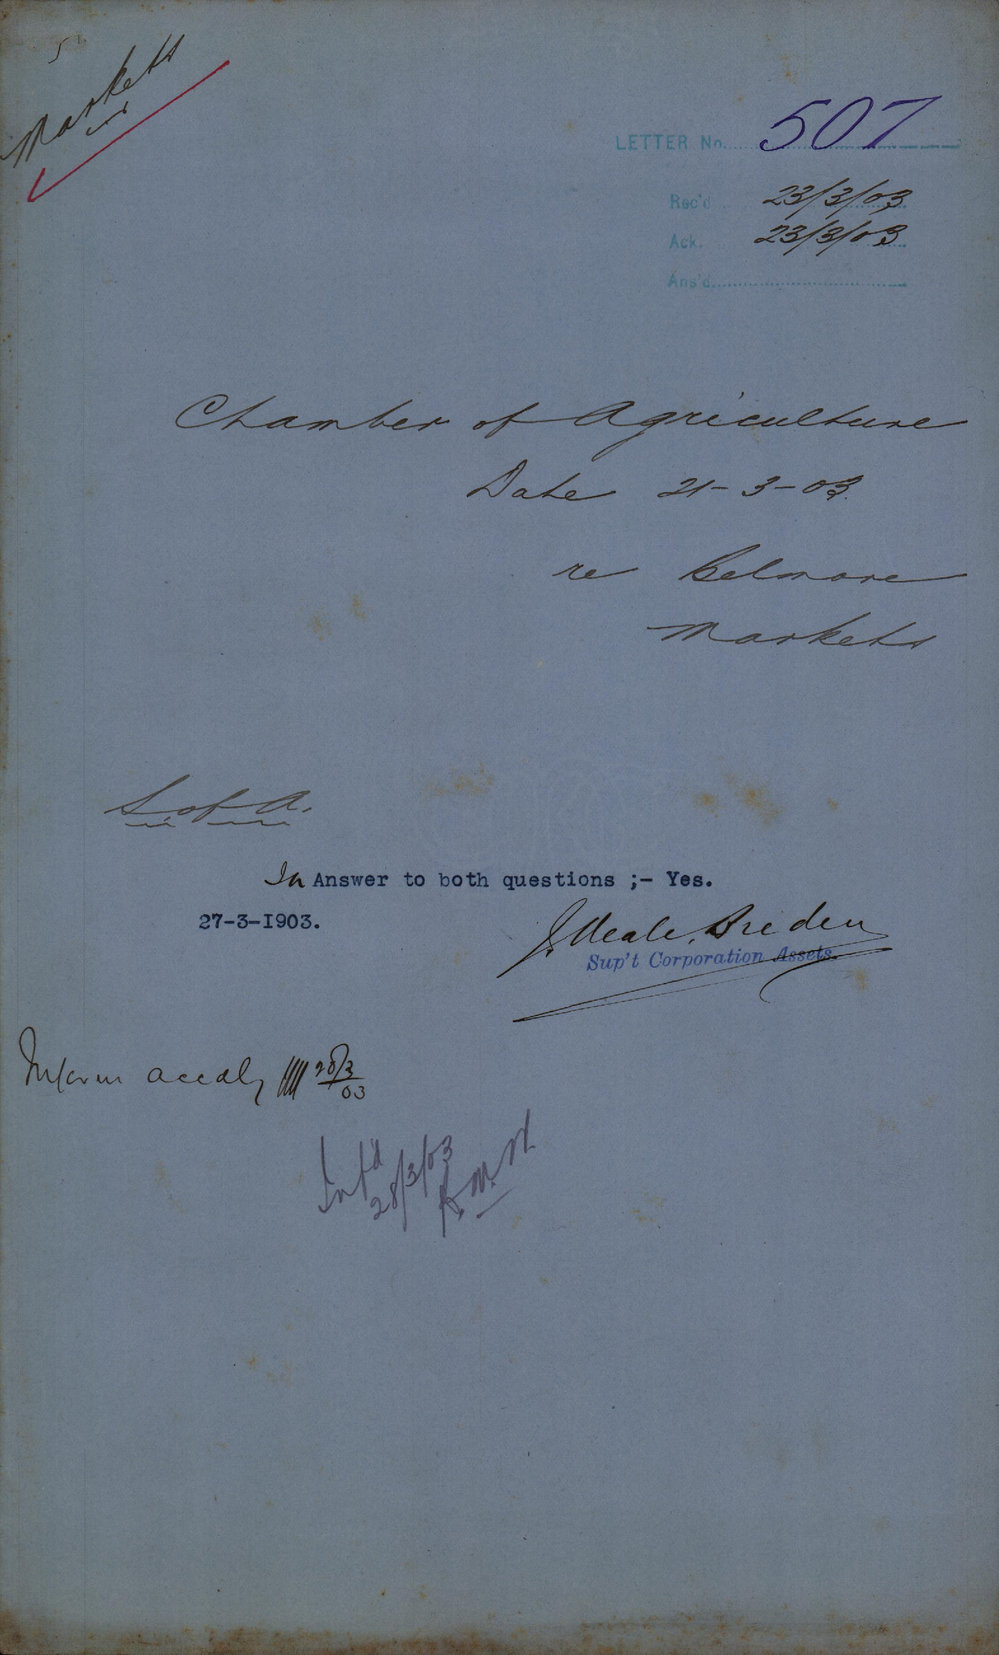 Markets
LETTER No. 507
Rec'd 23/3/03
Ack. 23/3/03
Ans'd
Chamber of Agriculture
Date 21-3-03.
re Belmore
Markets
S. of A.
In Answer to both questions ;- Yes.
27-3-I903.
J. Neale. Breden
Sup't Corporation Assets.
Inform accdly 28/3/03
Inf'd
28/3/03